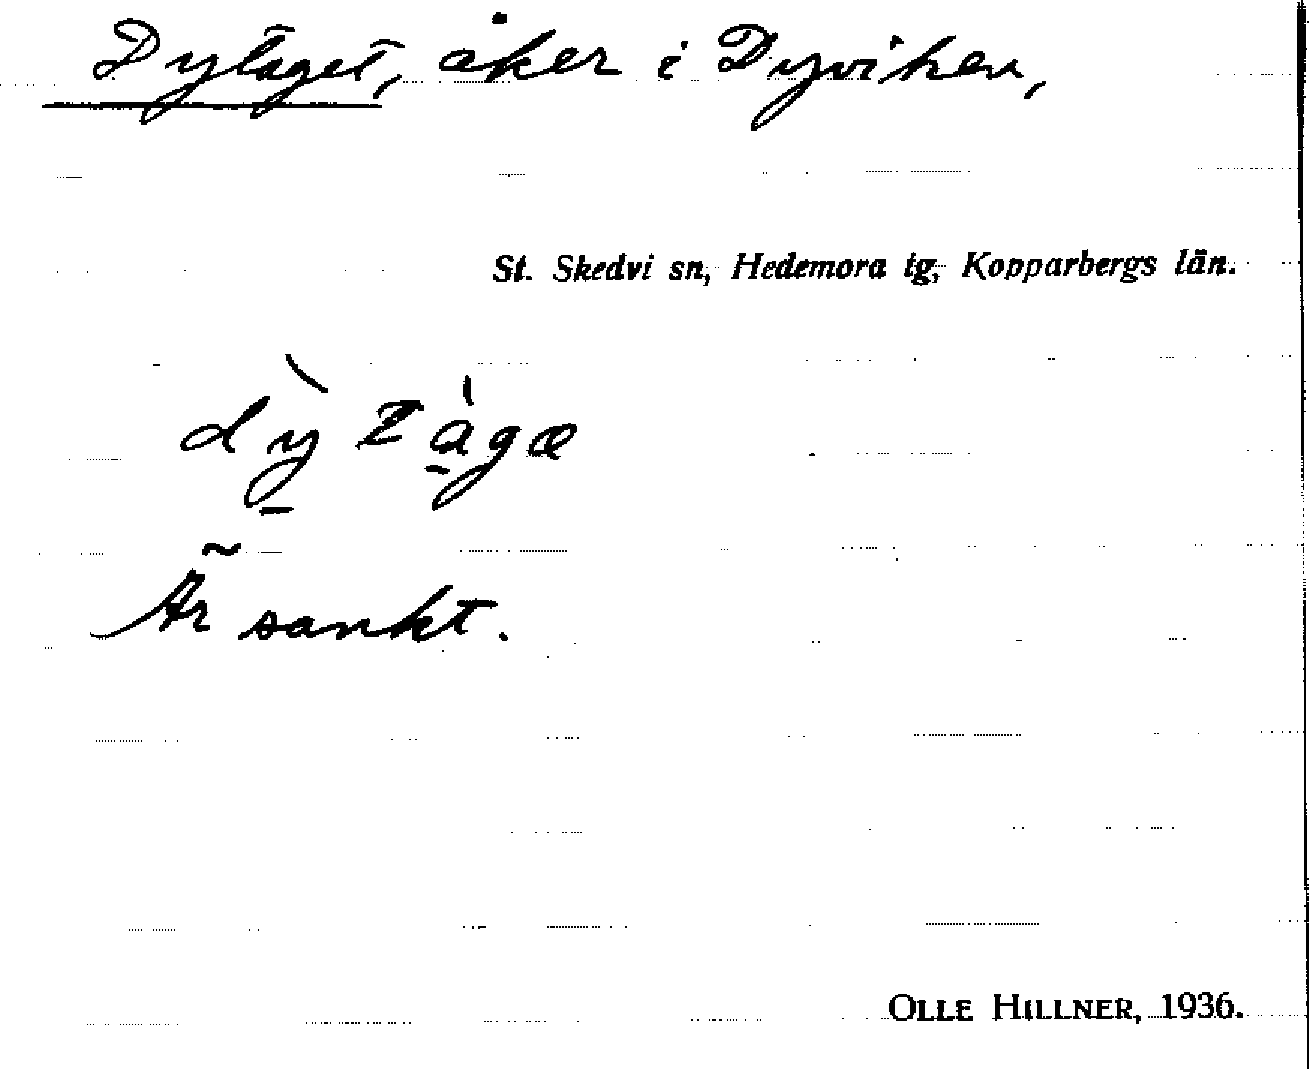 Dytaget, åker i Dyviken,
St. Skedvi sn, Hedemora tg, Kopparbergs län.
Är sankt.
OLLE HILLNER, 1936.